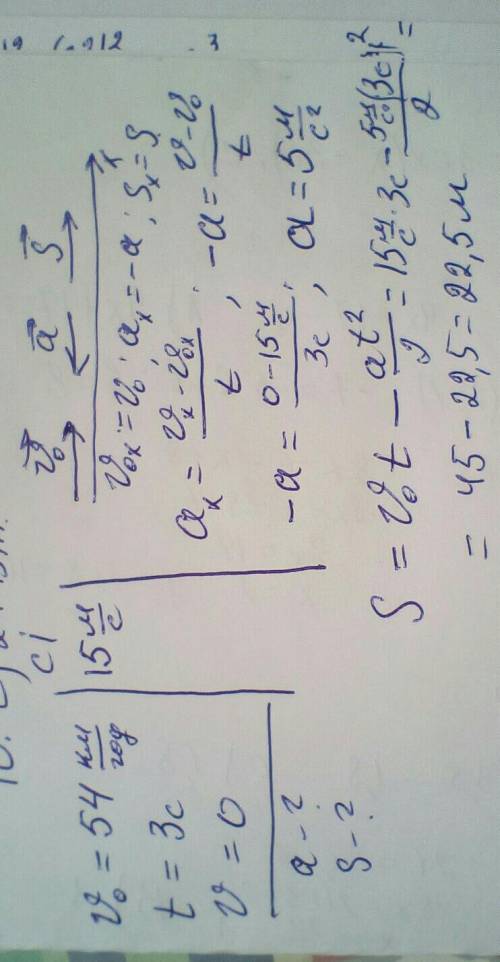 СІ
v₀ = 54 км/год
15 м/с
t = 3с
v = 0
a - ?
S - ?
v₀ a S
x
v₀ₓ = v₀; aₓ = -a; Sₓ = S
aₓ = (vₓ - v₀ₓ)/t; -a = (v - v₀)/t
-a = (0 - 15 м/с)/3с, a = 5 м/с²
S = v₀t - at²/2 = 15 м/с · 3с - 5 м/с² (3с)²/2 =
= 45 - 22,5 = 22,5 м